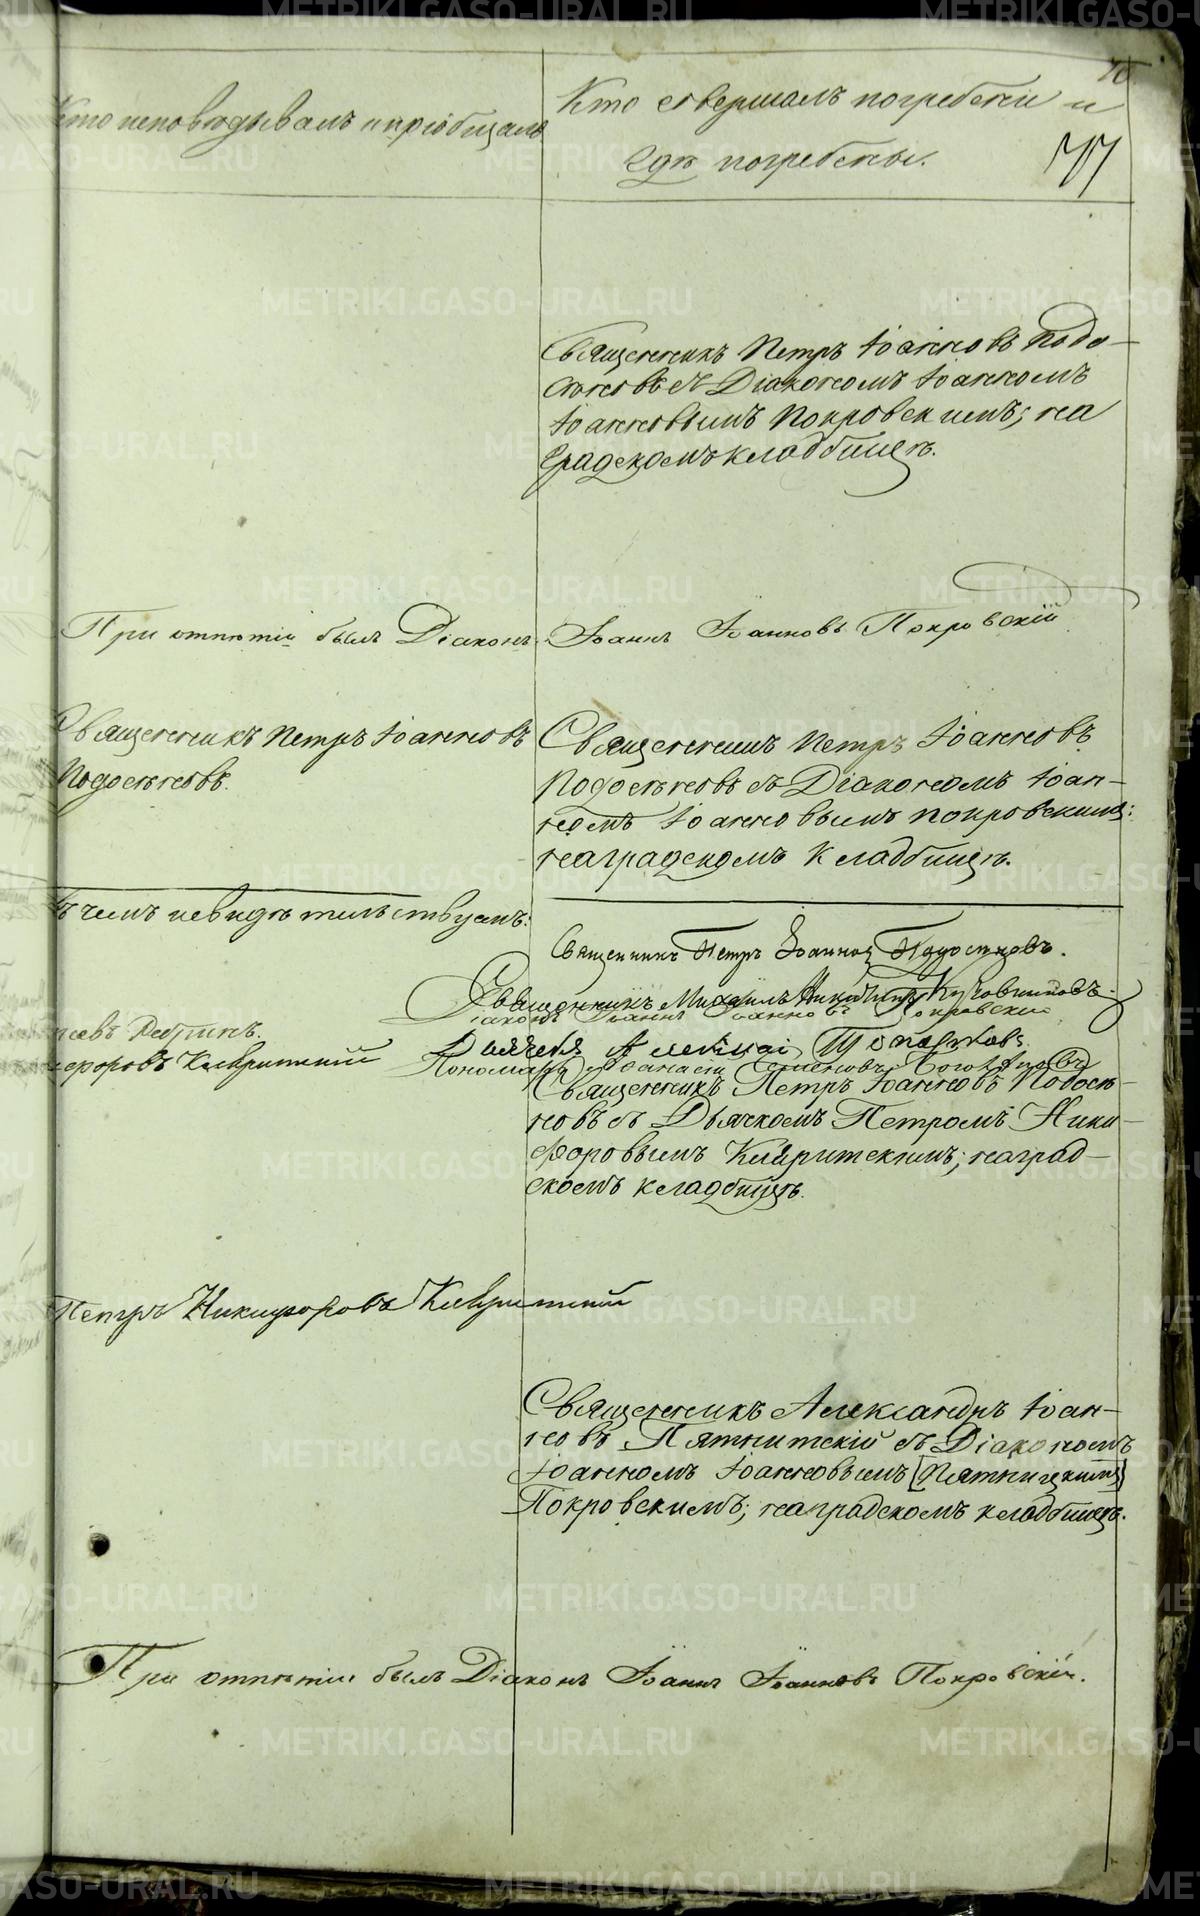 Кто исповѣдывалъ и пріобщалъ
Кто совершалъ погребеніе и
гдѣ погребены.
77
Священникъ Петръ Іоанновъ Подо-
сѣновъ съ Діакономъ Іоанномъ
Іоанновымъ Покровскимъ; на
градскомъ кладбищѣ.
При отпѣтіи былъ Діаконъ Іоаннъ Іоанновъ Покровскій
Священникъ Петръ Іоанновъ
Подосѣновъ.
Священникъ Петръ Іоанновъ
Подосѣновъ съ Діакономъ Іоан-
номъ Іоанновымъ Покровскимъ:
на градскомъ кладбищѣ.
чемъ свидѣтельствуемъ:
Священникъ Петръ Іоанновъ Подосѣновъ.
Священникъ Михаилъ
Діаконъ Іоаннъ Іоанновъ Покровскій
Дьячекъ Алексѣй Топорковъ
Пономарь Аѳанасій Семеновъ
Священникъ Петръ Іоанновъ Подосѣ-
новъ съ Дьячкомъ Петромъ Ники-
форовымъ на град-
скомъ кладбищѣ.
Петръ Никифоровъ
Священникъ Александръ Іоан-
новъ Пятнитскій съ Діакономъ
Іоанномъ Іоанновымъ [Пятницкимъ]
Покровскимъ; на градскомъ кладбищѣ.
При отпѣтіи былъ Діаконъ Іоаннъ Іоанновъ Покровскій.
METRIKI.GASO-URAL.RU